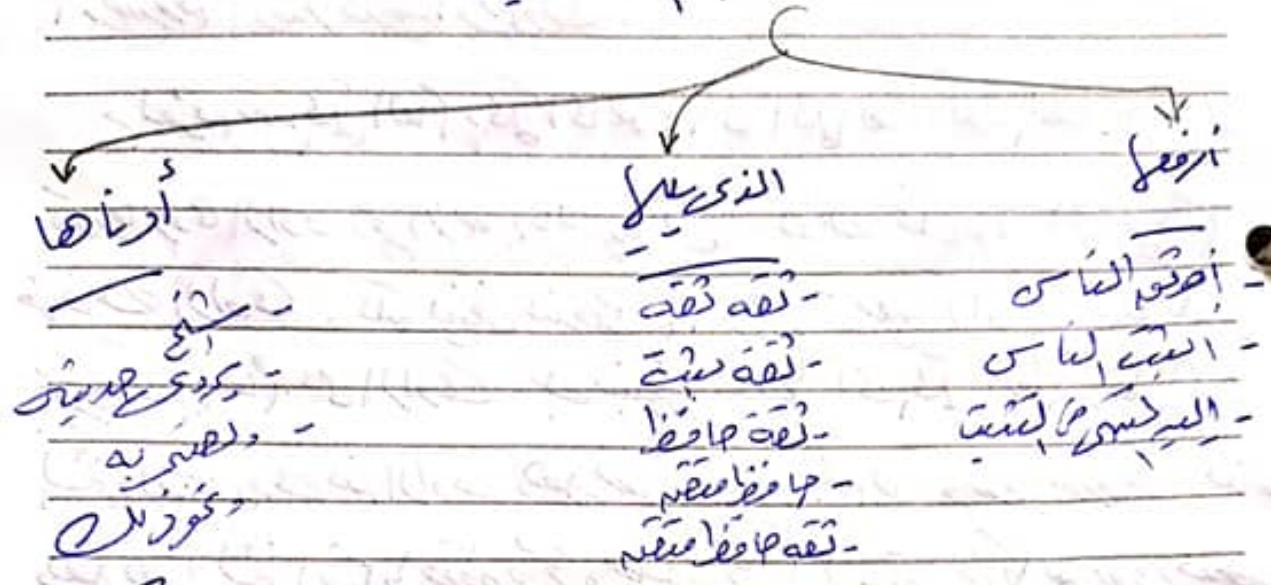 أرفعها
- أوثق الناس
- أثبت الناس
- إليه المنتهى في التثبت
الذي يليها
- ثقة ثقة
- ثقة ثبت
- ثقة حافظ
- حافظ متقن
- ثقة حافظ متقن
أدناها
- شيخ
- يروى حديثه
- ويعتبر به
ونحو ذلك